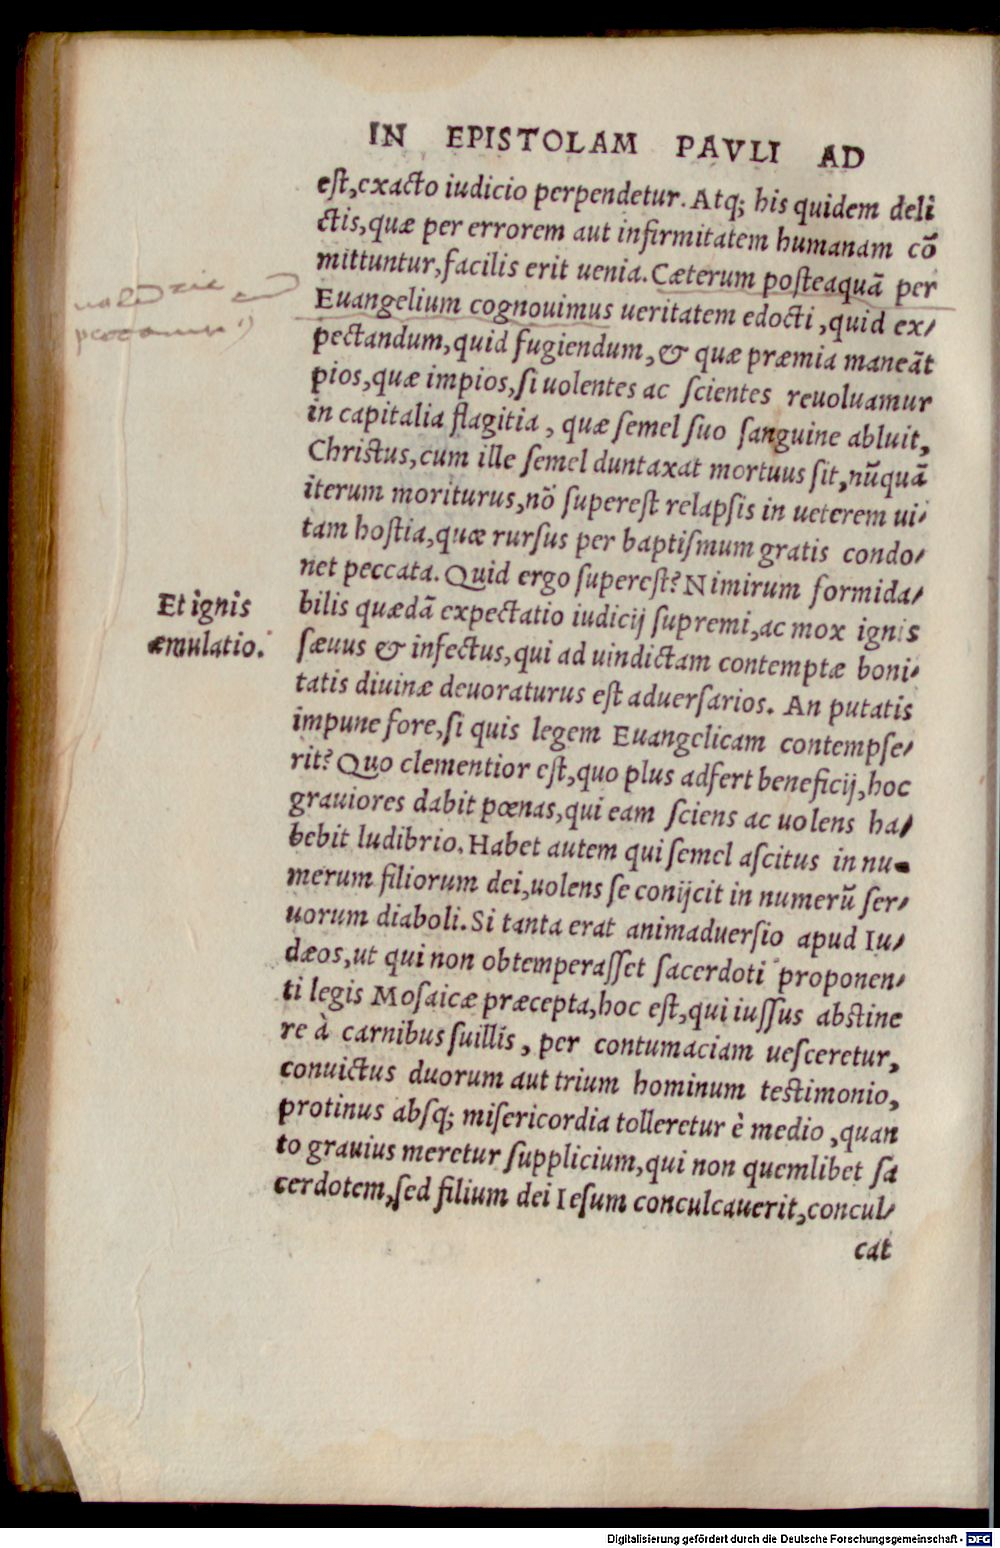 IN EPISTOLAM PAVLI AD
est, exacto iudicio perpendetur. Atq; his quidem deli
ctis, quæ per errorem aut infirmitatem humanam cō
mittuntur, facilis erit uenia. Cæterum posteaquā per
Euangelium cognouimus ueritatem edocti, quid ex/
pectandum, quid fugiendum, & quæ præmia maneāt
pios, quæ impios, si uolentes ac scientes reuoluamur
in capitalia flagitia, quæ semel suo sanguine abluit,
Christus, cum ille semel duntaxat mortuus sit, nūquā
iterum moriturus, nō superest relapsis in ueterem ui/
tam hostia, quæ rursus per baptismum gratis condo/
net peccata. Quid ergo superest? Nimirum formida/
Et ignis
æmulatio.
bilis quædā expectatio iudicij supremi, ac mox ignis
sæuus & infectus, qui ad uindictam contemptæ boni/
tatis diuinæ deuoraturus est aduersarios. An putatis
impune fore, si quis legem Euangelicam contempse/
rit? Quo clementior est, quo plus adfert beneficij, hoc
grauiores dabit pœnas, qui eam sciens ac uolens ha/
bebit ludibrio. Habet autem qui semel ascitus in nu-
merum filiorum dei, uolens se conijcit in numerū ser/
uorum diaboli. Si tanta erat animaduersio apud Iu/
dæos, ut qui non obtemperasset sacerdoti proponen/
ti legis Mosaicæ præcepta, hoc est, qui iussus abstine
re à carnibus suillis, per contumaciam uesceretur,
conuictus duorum aut trium hominum testimonio,
protinus absq; misericordia tolleretur è medio, quan
to grauius meretur supplicium, qui non quemlibet sa
cerdotem, sed filium dei Iesum conculcauerit, concul/
cat
Digitalisierung gefördert durch die Deutsche Forschungsgemeinschaft - DFG